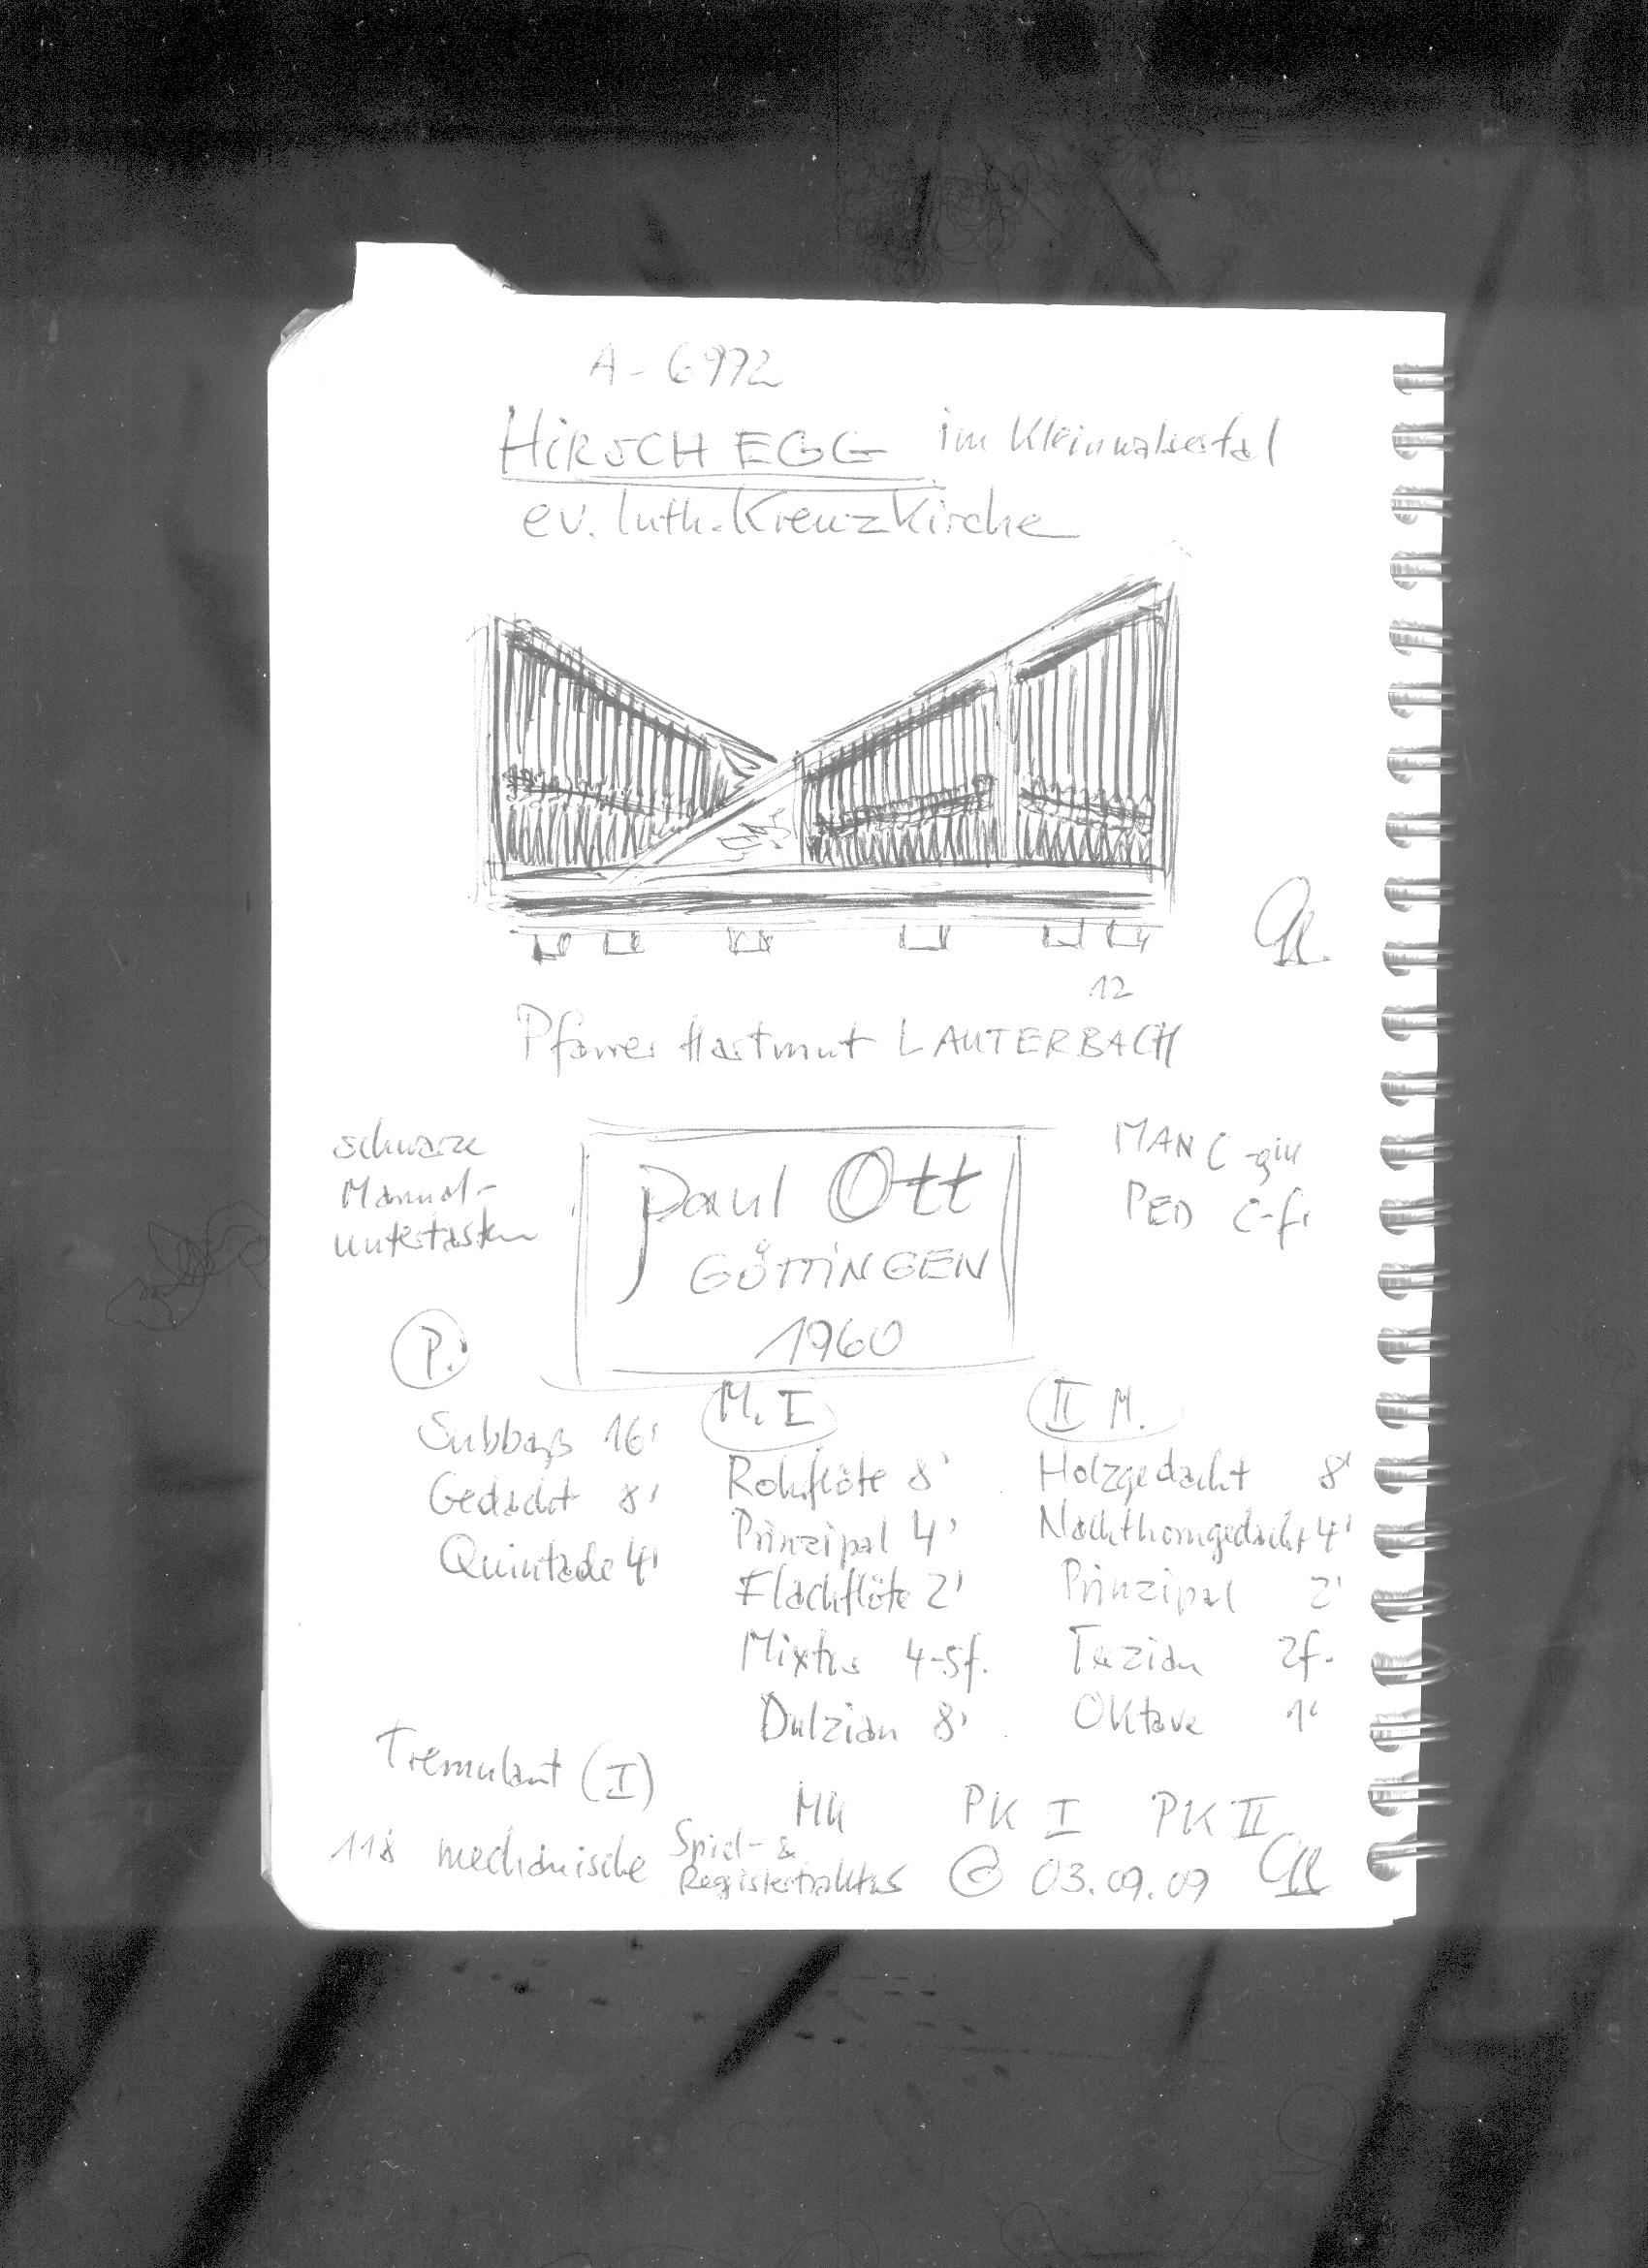 A - 6992
HiRSCHEGG im Kleinwalsertal
ev. luth. Kreuzkirche
12
Pfarrer Hartmut LAUTERBACH
schwarze
Manual-
untertasten
Paul Ott
GÖTTiNGEN
1960
MAN C - giii
PED C-f1
P.
Subbaß 16'
Gedackt 8'
Quintade 4'
M. I
Rohrflöte 8'
Prinzipal 4'
Flachflöte 2'
Mixtur 4-5f.
Dulzian 8'
II M.
Holzgedackt 8'
Nachthorngedackt 4'
Prinzipal 2'
Terzian 2f.
Oktave 1'
Tremulant (I)
MK PK I PK II
118 mechanische Spiel- &
Registertraktur
03.09.09